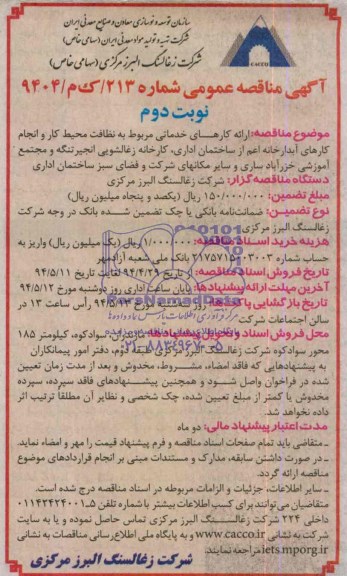 سازمان توسعه و نوسازی معادن و صنایع معدنی ایران
شرکت تهیه و تولید مواد معدنی ایران (سهامی خاص)
شرکت زغالسنگ البرز مرکزی (سهامی خاص)
CACCO
آگهی مناقصه عمومی شماره ۲۱۳/ک م/۹۴۰۴
نوبت دوم
موضوع مناقصه: ارائه کارهای خدماتی مربوط به نظافت محیط کار و انجام
کارهای آبدارخانه اعم از ساختمان اداری، کارخانه زغالشویی انجیرتنگه و مجتمع
آموزشی خزرآباد ساری و سایر مکانهای شرکت و فضای سبز ساختمان اداری
دستگاه مناقصه گزار: شرکت زغالسنگ البرز مرکزی
مبلغ تضمین: ۱۵۰/۰۰۰/۰۰۰ ریال (یکصد و پنجاه میلیون ریال)
نوع تضمین: ضمانت‌نامه بانکی یا چک تضمین شده بانک در وجه شرکت
زغالسنگ البرز مرکزی
هزینه خرید اسناد مناقصه: ۱/۰۰۰/۰۰۰ ریال (یک میلیون ریال) واریز به
حساب شماره بانک ملی شعبه آزادمهر
تاریخ فروش اسناد مناقصه: از تاریخ ۹۴/۴/۲۹ لغایت تاریخ ۹۴/۵/۱۱
آخرین مهلت ارائه پیشنهادها: پایان ساعت اداری روز دوشنبه مورخ ۹۴/۵/۱۲
تاریخ بازگشایی پاکت‌ها: روز مورخ رأس ساعت ۱۳ در
سالن اجتماعات شرکت
محل فروش اسناد و تحویل پیشنهادها: مازندران، سوادکوه، کیلومتر ۱۸۵
محور سوادکوه شرکت زغالسنگ البرز مرکزی طبقه دوم، دفتر امور پیمانکاران
به پیشنهادهایی که فاقد امضاء، مشروط، مخدوش و بعد از مدت زمان تعیین
شده در فراخوان واصل شود و همچنین پیشنهادهای فاقد سپرده، سپرده
مخدوش یا کمتر از مبلغ تعیین شده، چک شخصی و نظایر آن مطلقاً ترتیب اثر
داده نخواهد شد.
مدت اعتبار پیشنهاد مالی: دو ماه
ـ متقاضی باید تمام صفحات اسناد مناقصه و فرم پیشنهاد قیمت را مهر و امضاء نماید.
ـ در صورت داشتن سابقه، مدارک و مستندات مبنی بر انجام قراردادهای موضوع
مناقصه ارائه گردد.
ـ سایر اطلاعات، جزئیات و الزامات مربوطه در اسناد مناقصه درج شده است.
متقاضیان می‌توانند برای کسب اطلاعات بیشتر با شماره تلفن ۵ـ۰۱۱۴۲۴۲۴۰۰۱
داخلی ۲۲۴ شرکت زغالسنگ البرز مرکزی تماس حاصل نموده و یا به سایت
شرکت به نشانی www.cacco.ir و به پایگاه ملی اطلاع‌رسانی مناقصات به نشانی
iets.mporg.ir مراجعه نمایند.
شرکت زغالسنگ البرز مرکزی